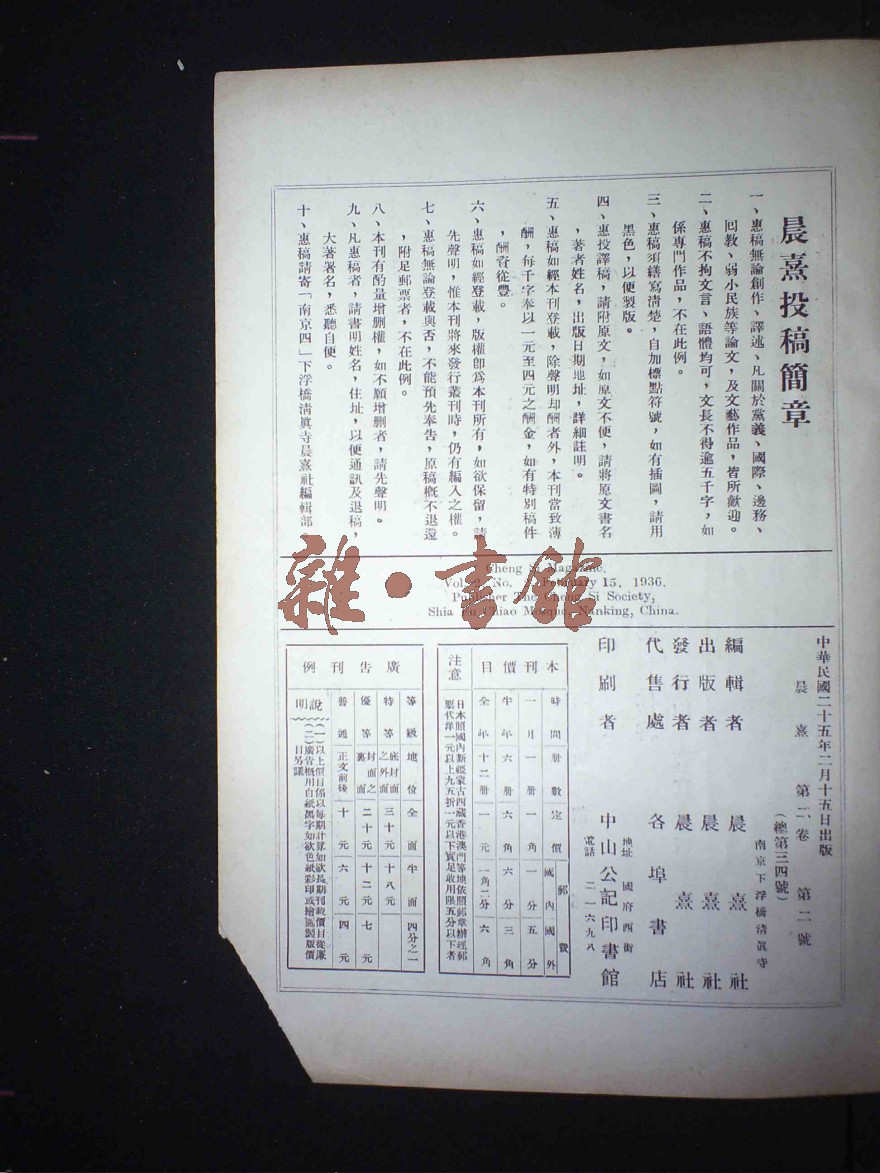 晨熹投稿簡章
一、惠稿無論創作、譯述、凡關於黨義、國際、邊務、
回教、弱小民族等論文，及文藝作品，皆所歡迎。
二、惠稿不拘文言、語體均可，文長不得逾五千字，如
係專門作品，不在此例。
三、惠稿須繕寫清楚，自加標點符號，如有插圖，請用
黑色，以便製版。
四、惠投譯稿，請附原文，如原文不便，請將原文書名
，著者姓名，出版日期地址，詳細註明。
五、惠稿如經本刊登載，除聲明却酬者外，本刊當致薄
酬，每千字奉以一元至四元之酬金，如有特別稿件
，酬資從豐。
六、惠稿如經登載，版權卽爲本刊所有，如欲保留，請
先聲明，惟本刊將來發行叢刊時，仍有編入之權。
七、惠稿無論登載與否，不能預先奉告，原稿概不退還
，附足郵票者，不在此例。
八、本刊有酌量增删權，如不願增删者，請先聲明。
九、凡惠稿者，請書明姓名，住址，以便通訊及退稿，
大著署名，悉聽自便。
十、惠稿請寄「南京四」下浮橋淸眞寺晨熹社編輯部
Cheng Si Magazine.
Vol. 2, No. February 15, 1936.
Publisher The Cheng Si Society,
Shia Fu Chiao Mosque, Nanking, China.
中華民國二十五年二月十五日出版
晨熹 第二卷 第二號
（總第三四號）
南京下浮橋淸眞寺
編輯者 晨熹社
出版者 晨熹社
發行者 晨熹社
代售處 各埠書店
地址 國府西街
印刷者 中山公記印書館
電話 二一六九八
本刊價目
時間 册數 定價 郵費 國內 國外
一月 一册 一角 一分 五分
半年 六册 六角 六分 三角
全年 十二册 一元 一角二分 六角
注意
日本照國內新疆蒙古西藏香港澳門等地依照郵章辦理郵
票代洋一元以上九五折一元以下實足收用限五分以下者
廣告刊例
等級 地位 全面 半面 四分之一
特等 底封面之外面 三十元 十八元
優等 封面之裏面 二十元 十二元 七元
普通 正文前後 十元 六元 四元
說明
（一）以上價目係以每期計算如欲長期刊政價目從廉
（二）廣告概用白紙黑字如欲色紙彩印或繪圖製版價
目另議
雜·書館